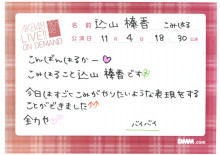 AKB48
LIVE!!
ON DEMAND
名前 込山榛香 こみはる
公演日 11月4日 18:30公演
こんばんはるかー
こみはること込山榛香です
今日はすごくこみがやりたいような表現をする
ことができました
全力や
バイバイ
DMM.com